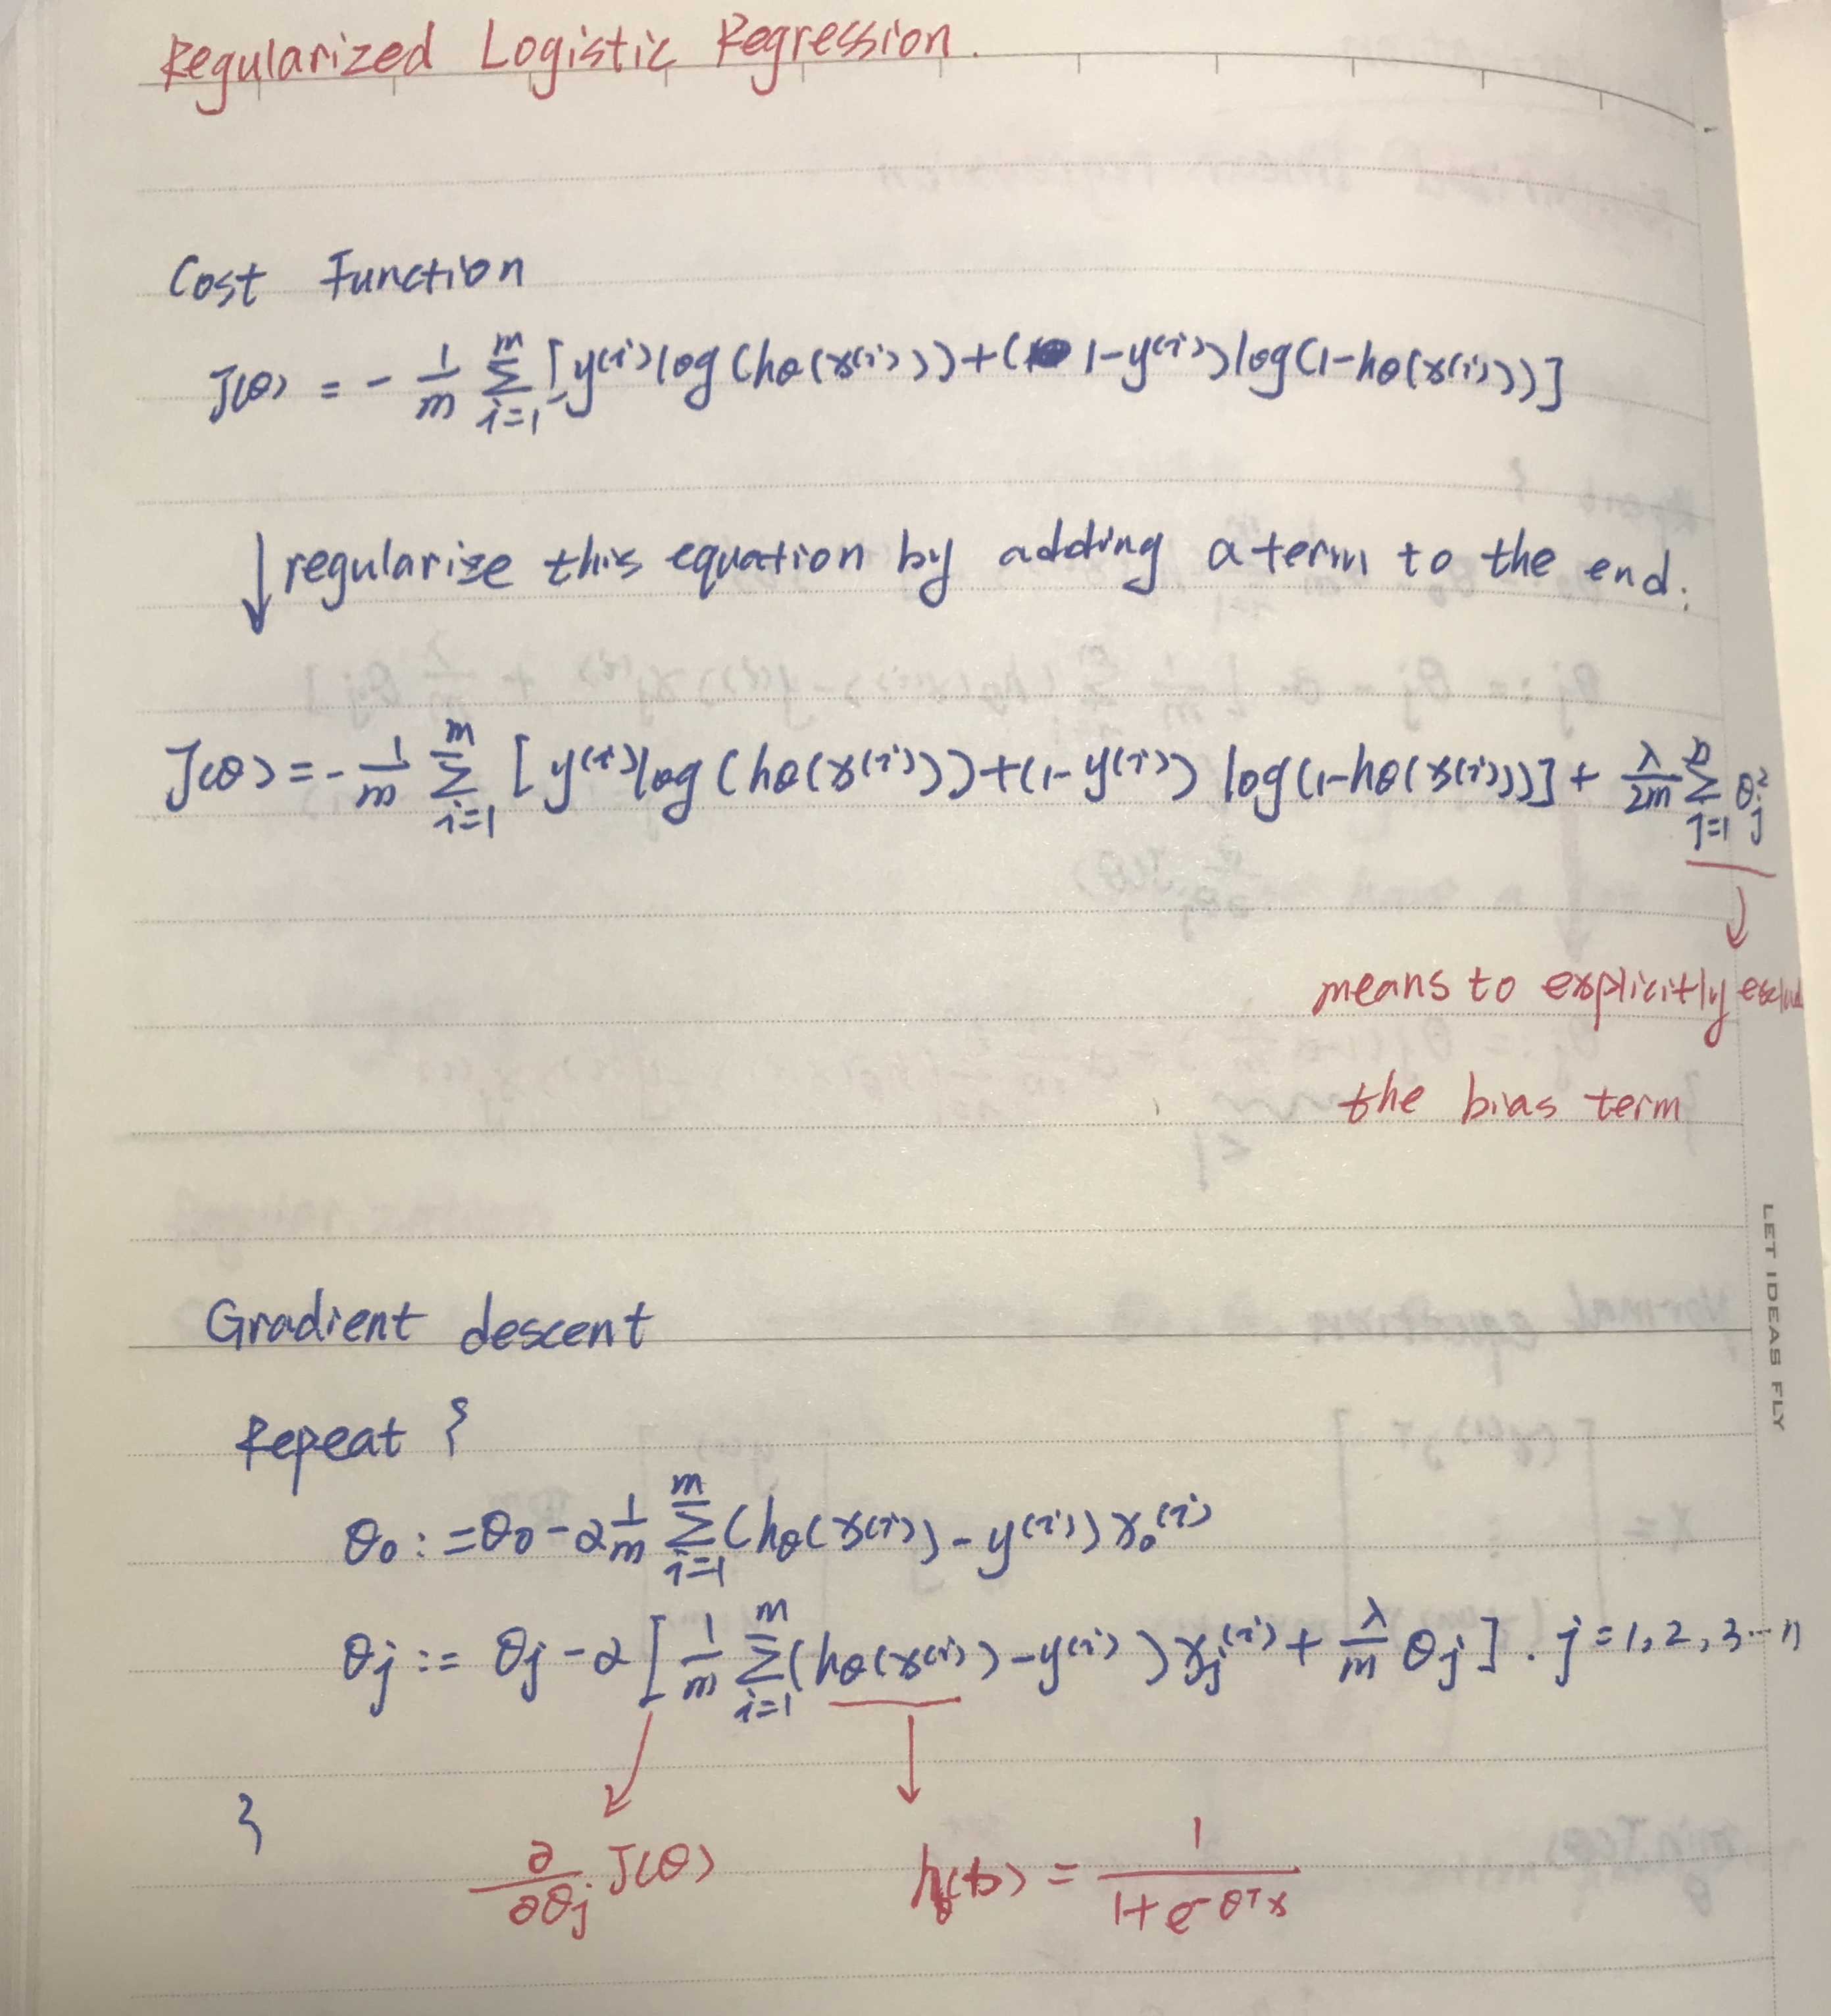 Regularized Logistic Regression.
Cost Function
J(θ) = - 1/m Σ_{i=1}^{m} [y^{(i)} log(hθ(x^{(i)})) + (1-y^{(i)}) log(1-hθ(x^{(i)}))]
↓ regularize this equation by adding a term to the end.
J(θ) = - 1/m Σ_{i=1}^{m} [y^{(i)} log(hθ(x^{(i)})) + (1-y^{(i)}) log(1-hθ(x^{(i)}))] + λ/2m Σ_{j=1}^{n} θ_j^2
means to explicitly
the bias term
LET IDEAS FLY
Gradient descent
Repeat {
θ0 := θ0 - α 1/m Σ_{i=1}^{m} (hθ(x^{(i)}) - y^{(i)}) x_0^{(i)}
θj := θj - α [1/m Σ_{i=1}^{m} (hθ(x^{(i)}) - y^{(i)}) x_j^{(i)} + λ/m θj]. j = 1, 2, 3...n
}
∂/∂θj J(θ)
hθ(x) = 1/(1+e^{-θ^T x})